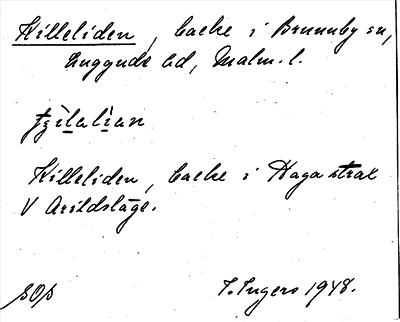 Killeliden, backe i Brunnby sn,
Luggude hd, Malm. l.
Killeliden, backe i Haga strax
V Arildsläge.
SOp I. Ingers 1948.